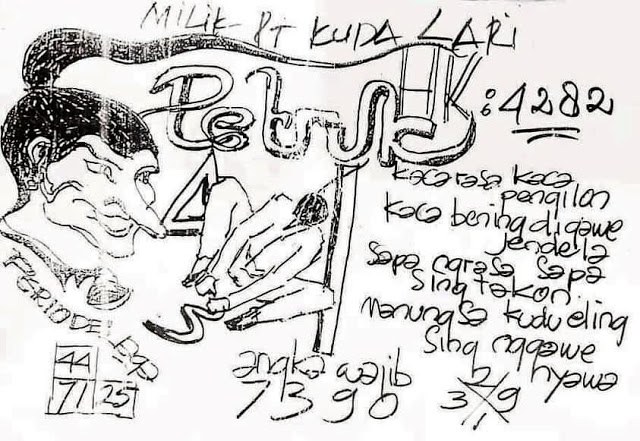 MILIK PT KUDA LARI
Petruk
HK : 4282
kaca rasa kaca
pengilon
kaca bening digawe
jendela
sapa ngrasa sapa
sing takon.
Manungsa kudu eling
sing nggawe
nyawa
4
PERIODE
44
71 25
angka wajib
7390
2
3 9
1